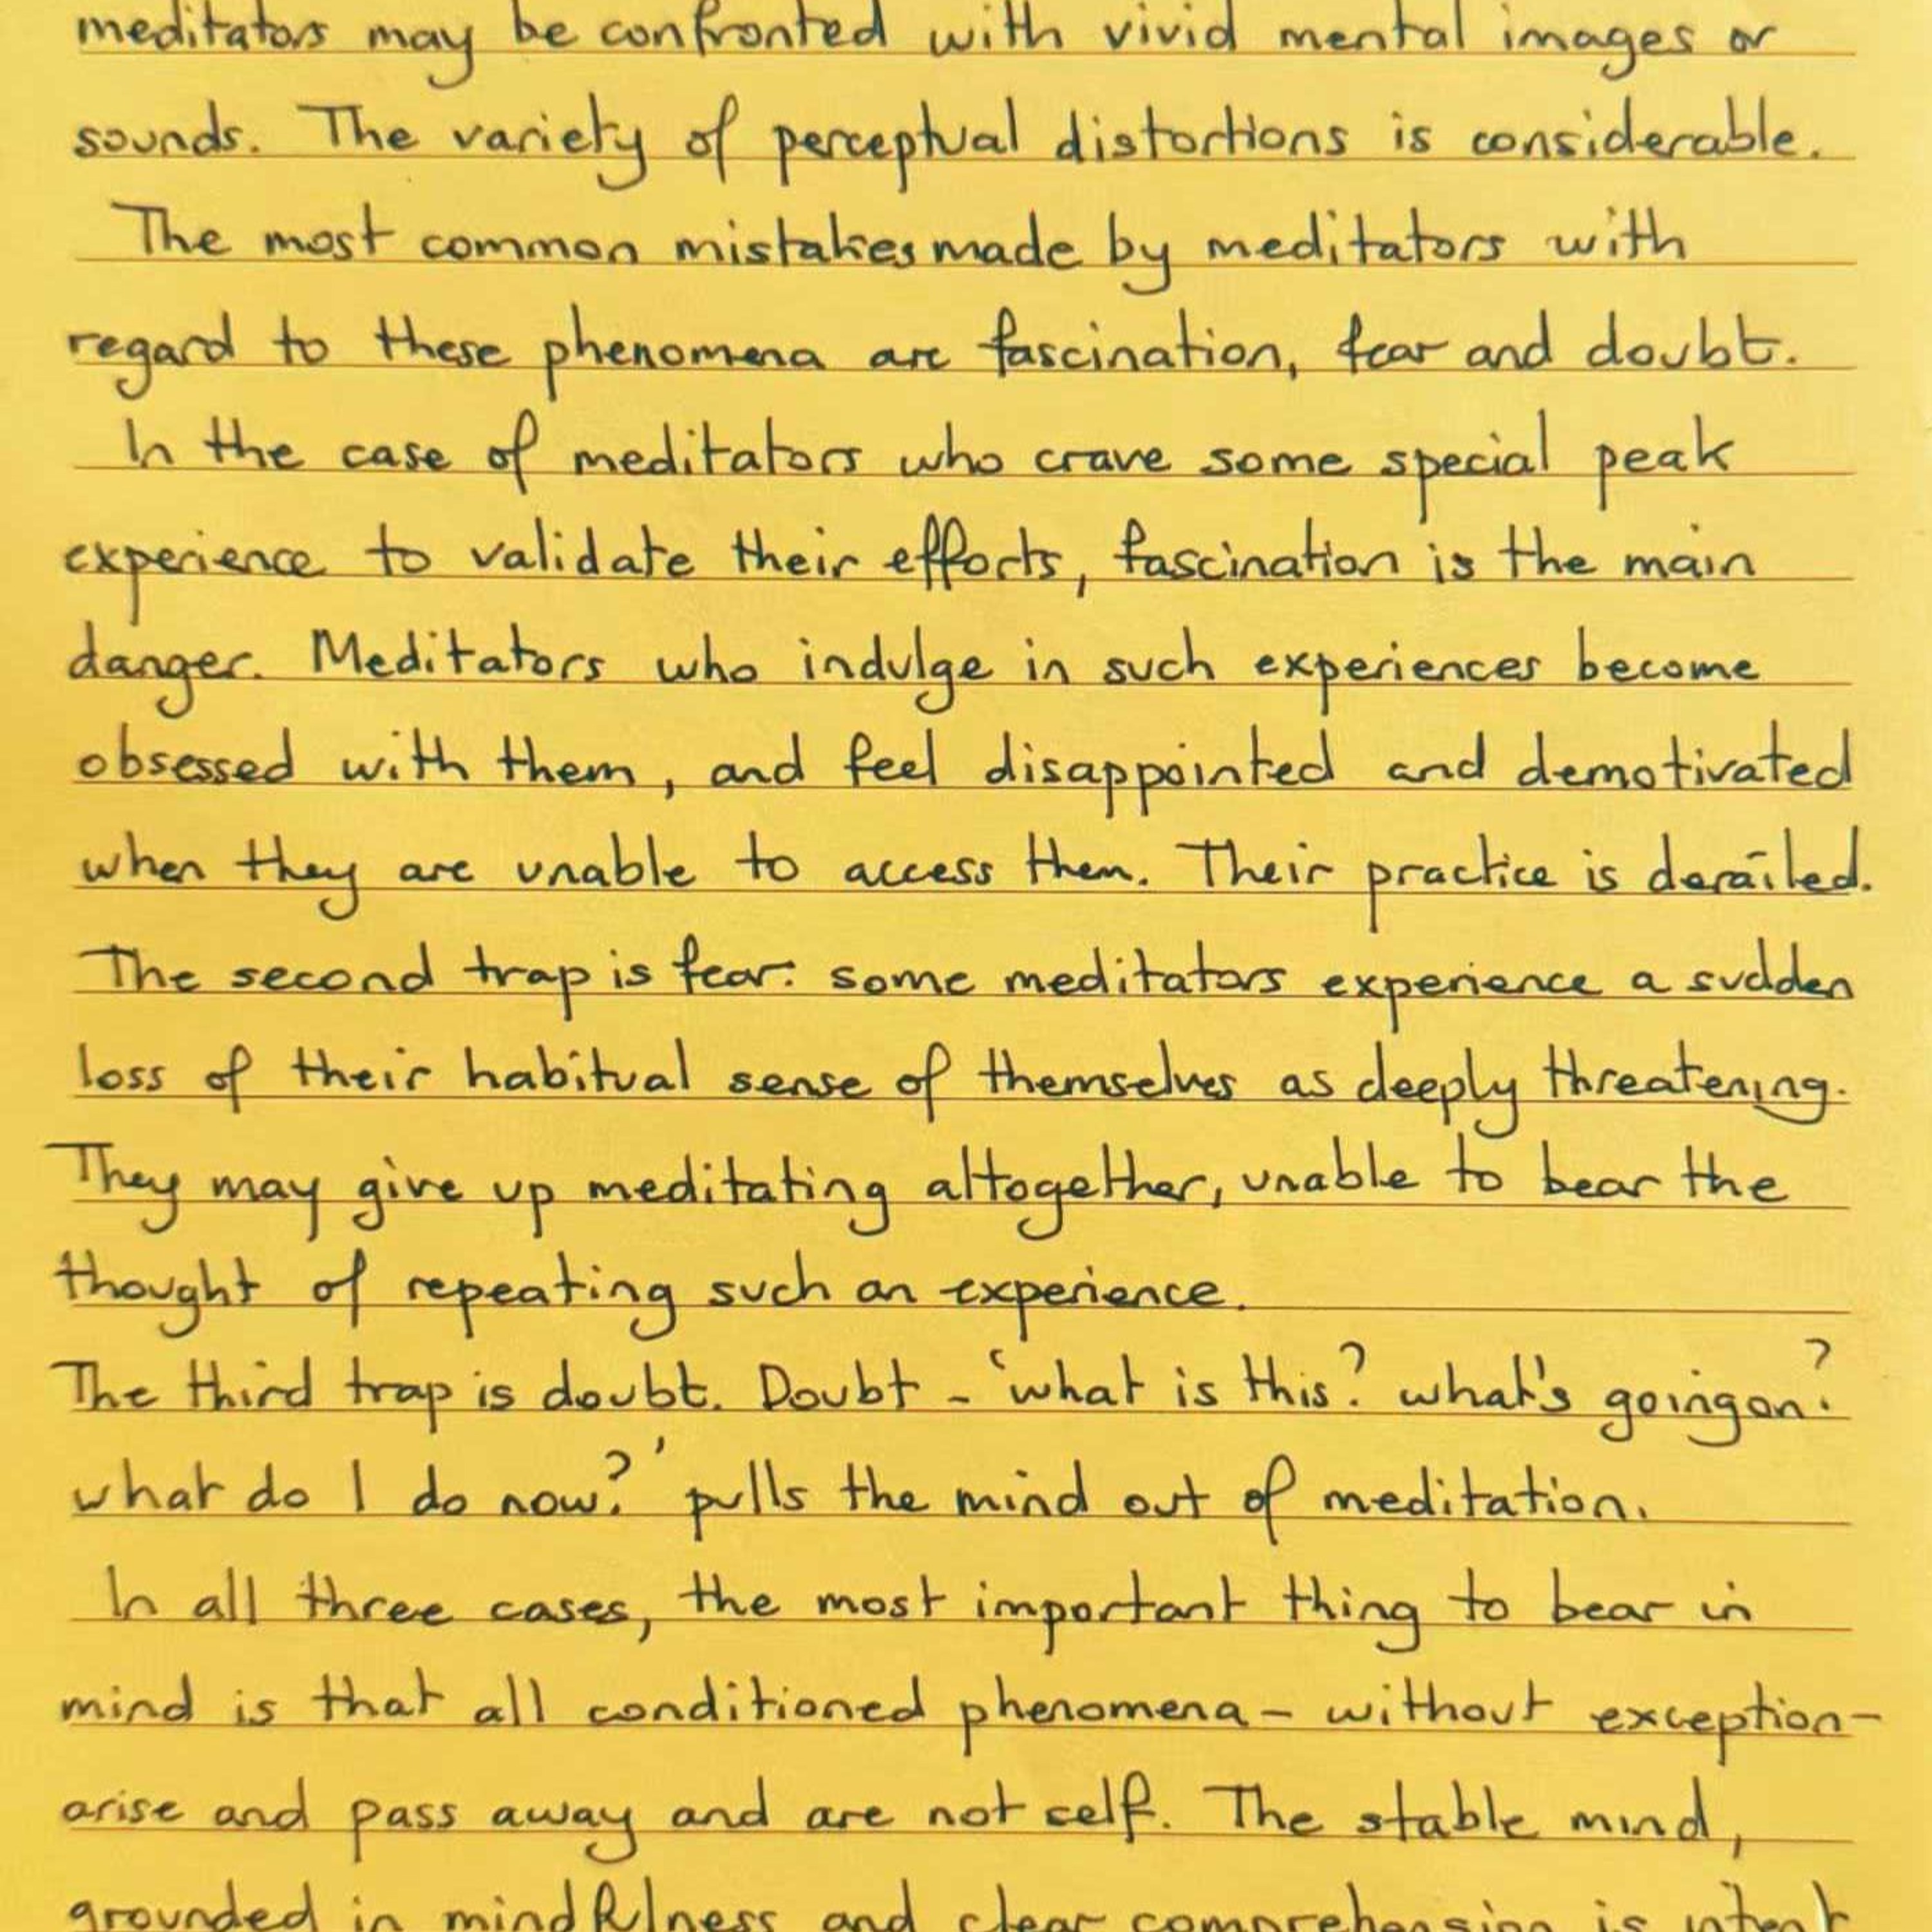 meditators may be confronted with vivid mental images or
sounds. The variety of perceptual distortions is considerable.
The most common mistakes made by meditators with
regard to these phenomena are fascination, fear and doubt.
In the case of meditators who crave some special peak
experience to validate their efforts, fascination is the main
danger. Meditators who indulge in such experiences become
obsessed with them, and feel disappointed and demotivated
when they are unable to access them. Their practice is derailed.
The second trap is fear: some meditators experience a sudden
loss of their habitual sense of themselves as deeply threatening.
They may give up meditating altogether, unable to bear the
thought of repeating such an experience.
The third trap is doubt. Doubt - 'what is this? what's going on?
what do I do now?' pulls the mind out of meditation.
In all three cases, the most important thing to bear in
mind is that all conditioned phenomena - without exception -
arise and pass away and are not self. The stable mind,
grounded in mindfulness and clear comprehension is intent